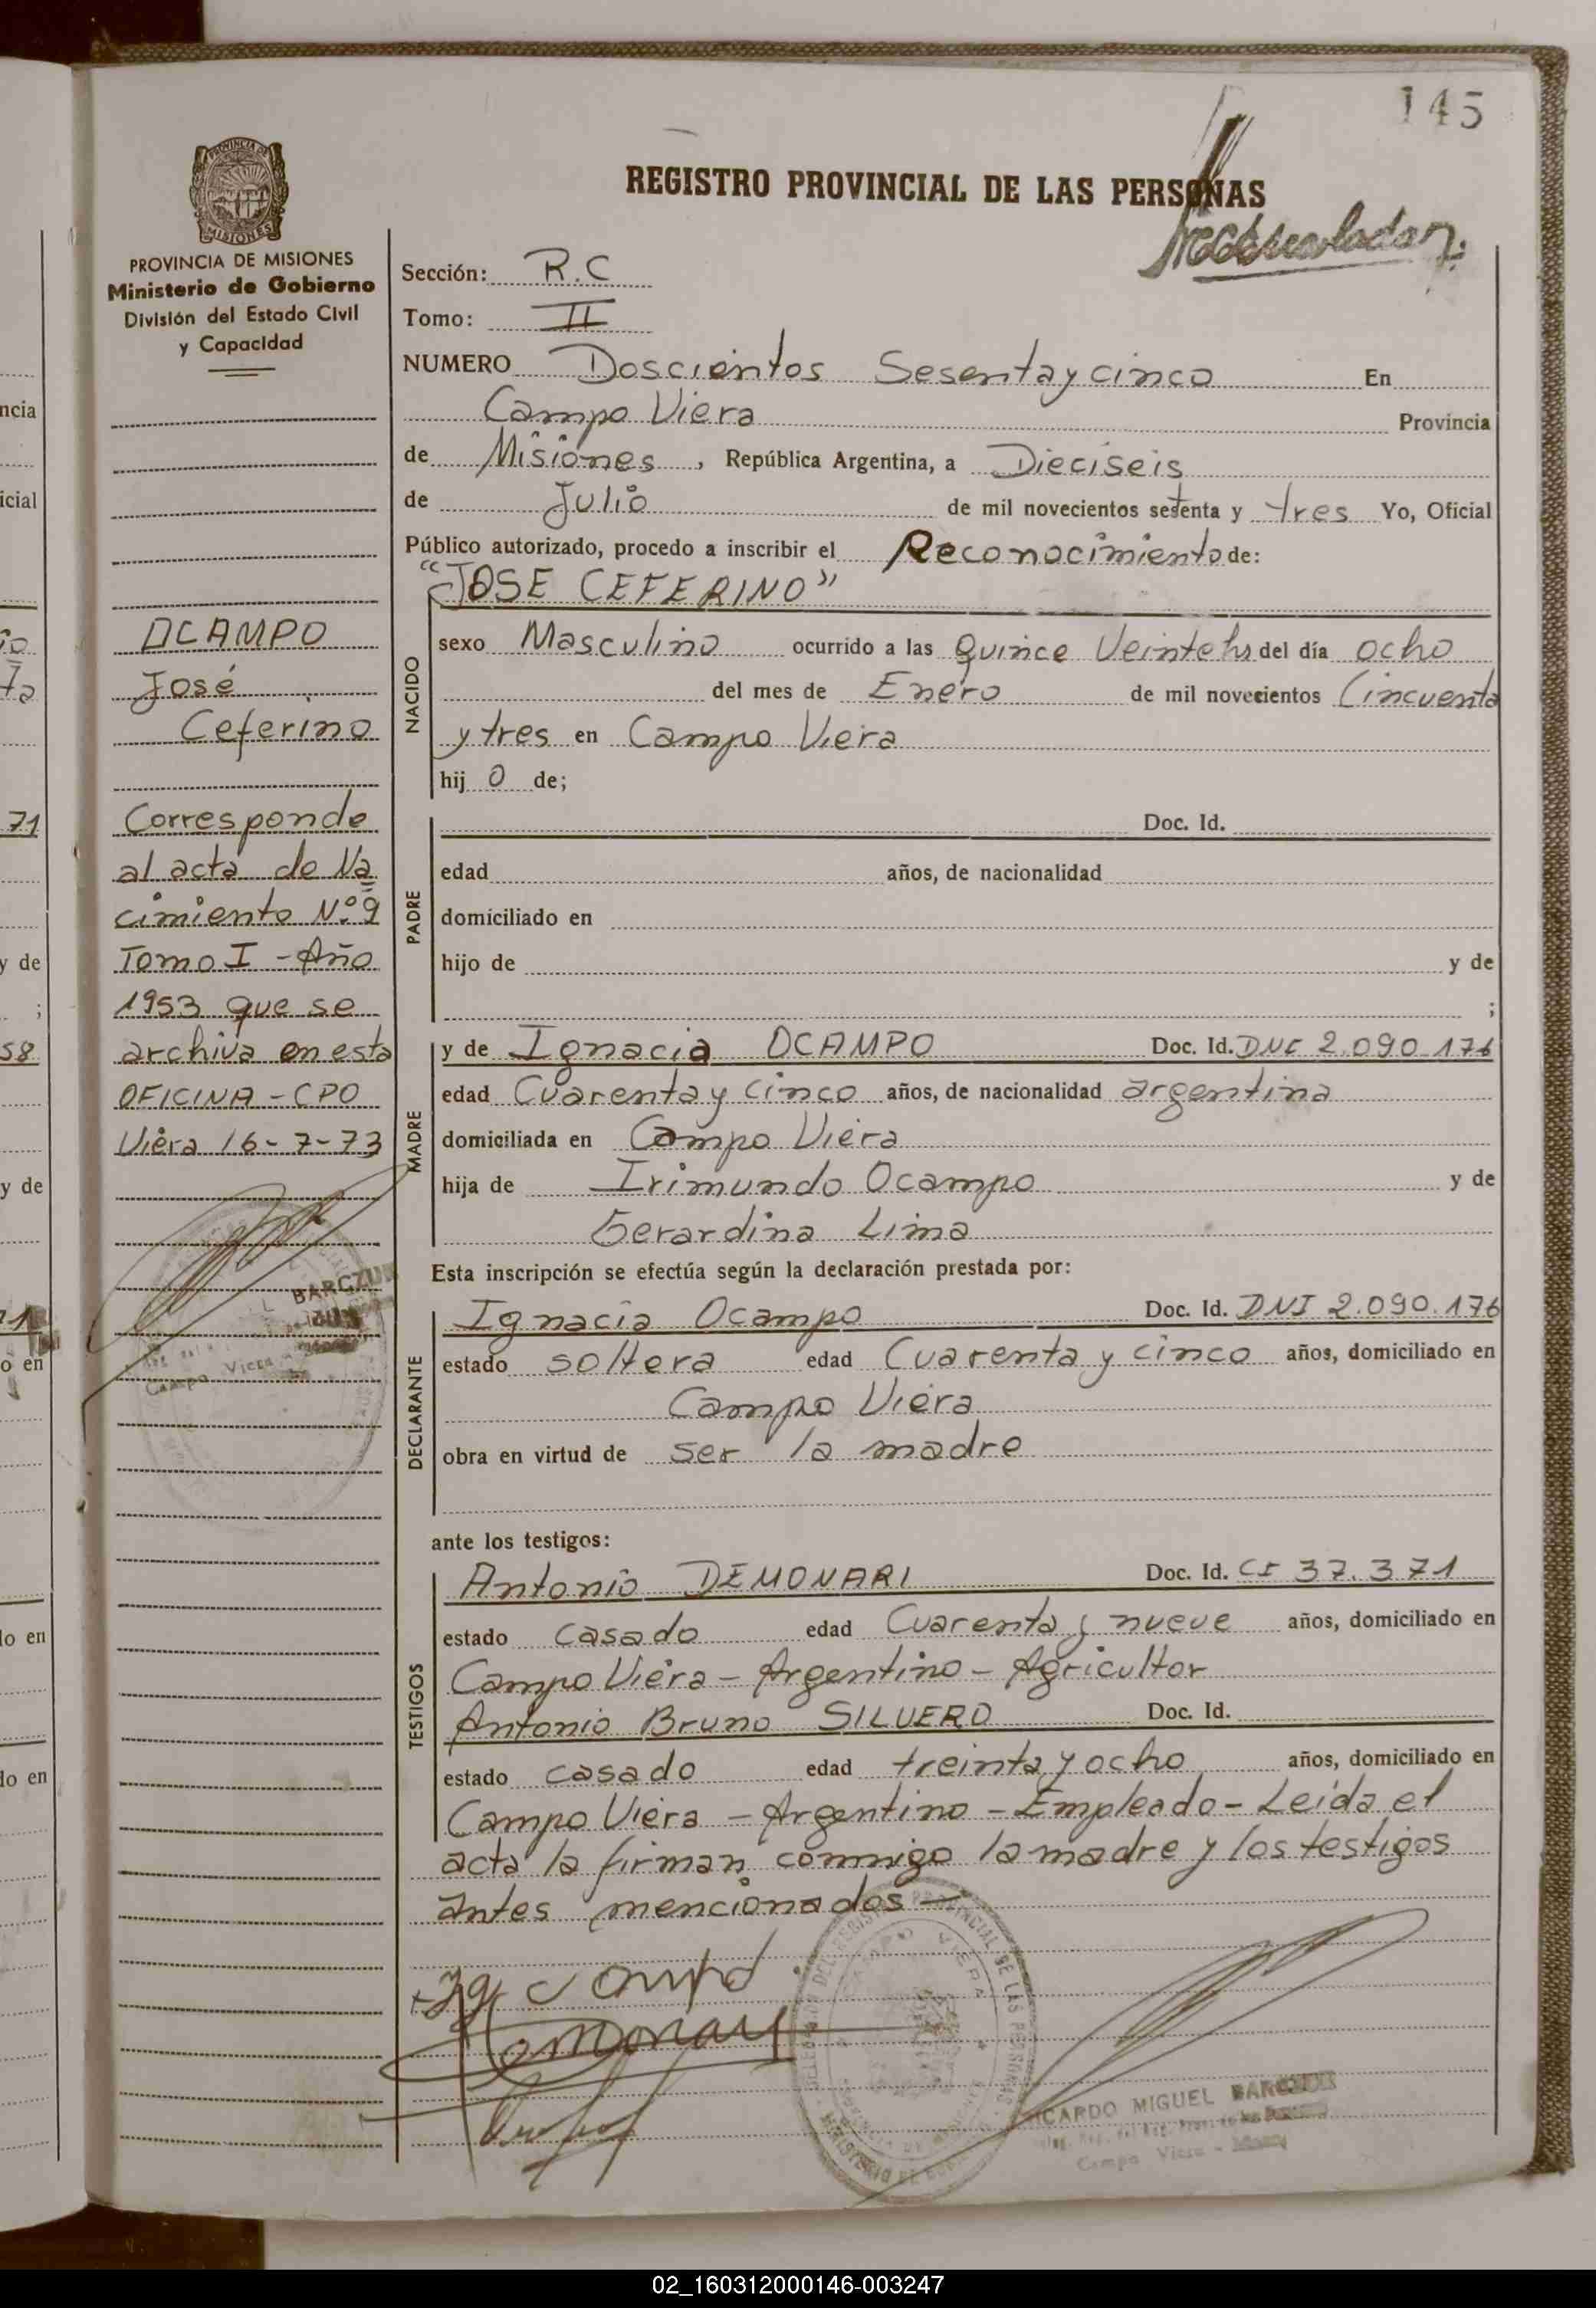 145
REGISTRO PROVINCIAL DE LAS PERSONAS
PROVINCIA DE MISIONES
Ministerio de Gobierno
División del Estado Civil
y Capacidad
Sección: R.C
Tomo: II
NUMERO Doscientos Sesenta y cinco En
Campo Viera Provincia
de Misiones , República Argentina, a Dieciseis
de Julio de mil novecientos setenta y tres Yo, Oficial
Público autorizado, procedo a inscribir el Reconocimiento de:
"JOSE CEFERINO"
NACIDO
sexo Masculino ocurrido a las Quince Veinte hs del día ocho
del mes de Enero de mil novecientos Cincuenta
y tres en Campo Viera
hij o de;
PADRE
Doc. Id.
edad años, de nacionalidad
domiciliado en
hijo de y de
;
MADRE
y de Ignacia OCAMPO Doc. Id. DNI 2.090.176
edad Cuarenta y cinco años, de nacionalidad argentina
domiciliada en Campo Viera
hija de Irimundo Ocampo y de
Gerardina Lima
Esta inscripción se efectúa según la declaración prestada por:
DECLARANTE
Ignacia Ocampo Doc. Id. DNI 2.090.176
estado soltera edad Cuarenta y cinco años, domiciliado en
Campo Viera
obra en virtud de ser la madre
ante los testigos:
TESTIGOS
Antonio DEMONARI Doc. Id. CI 37.371
estado casado edad Cuarenta y nueve años, domiciliado en
Campo Viera - Argentino - Agricultor
Antonio Bruno SILVERO Doc. Id.
estado casado edad treinta y ocho años, domiciliado en
Campo Viera - Argentino - Empleado - Leída el
acta la firman conmigo la madre y los testigos
antes mencionados -
RICARDO MIGUEL BARCZUK
Campo Viera
OCAMPO
José
Ceferino
Corresponde
al acta de Na
cimiento N.º 9
Tomo I - Año
1953 que se
archiva en esta
OFICINA - CPO
Viera 16-7-73
BARCZUK
Campo Viera
ncia
icial
71
y de
;
58
y de
o en
lo en
lo en
02_160312000146-003247